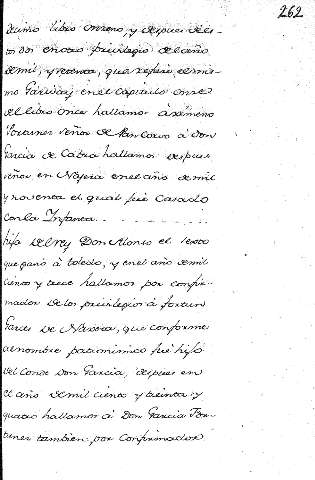 262
decimo libro onceno, y despues de es-
to en otro privilegio del año
de mil, y setenta, que refiere el mis-
mo Garivay en el Capitulo once
del libro once hallamos à Ximeno
Fortunes señor de San Cobo à Don
Garcia de Cabra hallamos despues
señor en Naxera en el año de mil
y noventa el qual fue Casado
con la Infanta
hija del rey Don Alonso el sexto
que ganò à toledo, y en el año de mil
ciento y trece hallamos por confir-
mador de los privilegios à fortun
Garces de Naxera, que conforme
al nombre patronimico fue hijo
del Conde Don Garcia, despues en
el año de mil ciento y treinta y
quatro hallamos à Don Garcia For-
tunes tambien por Confirmador